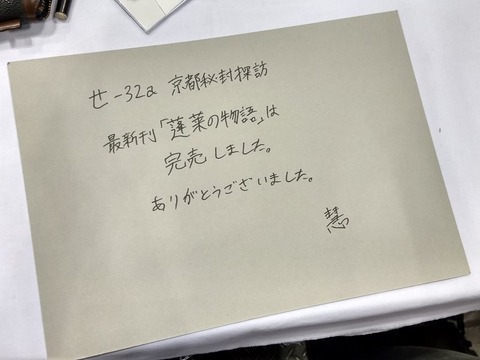 せ-32a 京都秘封探訪
最新刊「蓬莱の物語」は
完売しました。
ありがとうございました。
慧